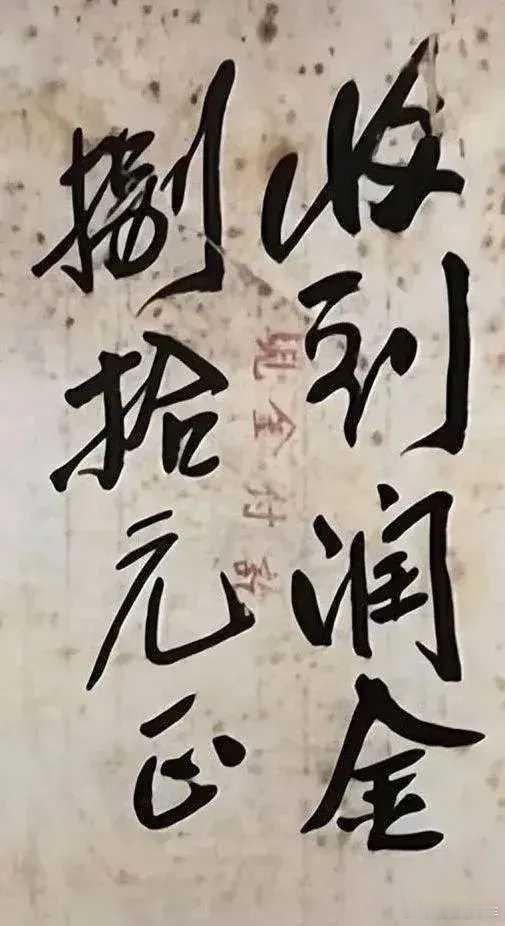 收到润金
捌拾元正
现金付讫